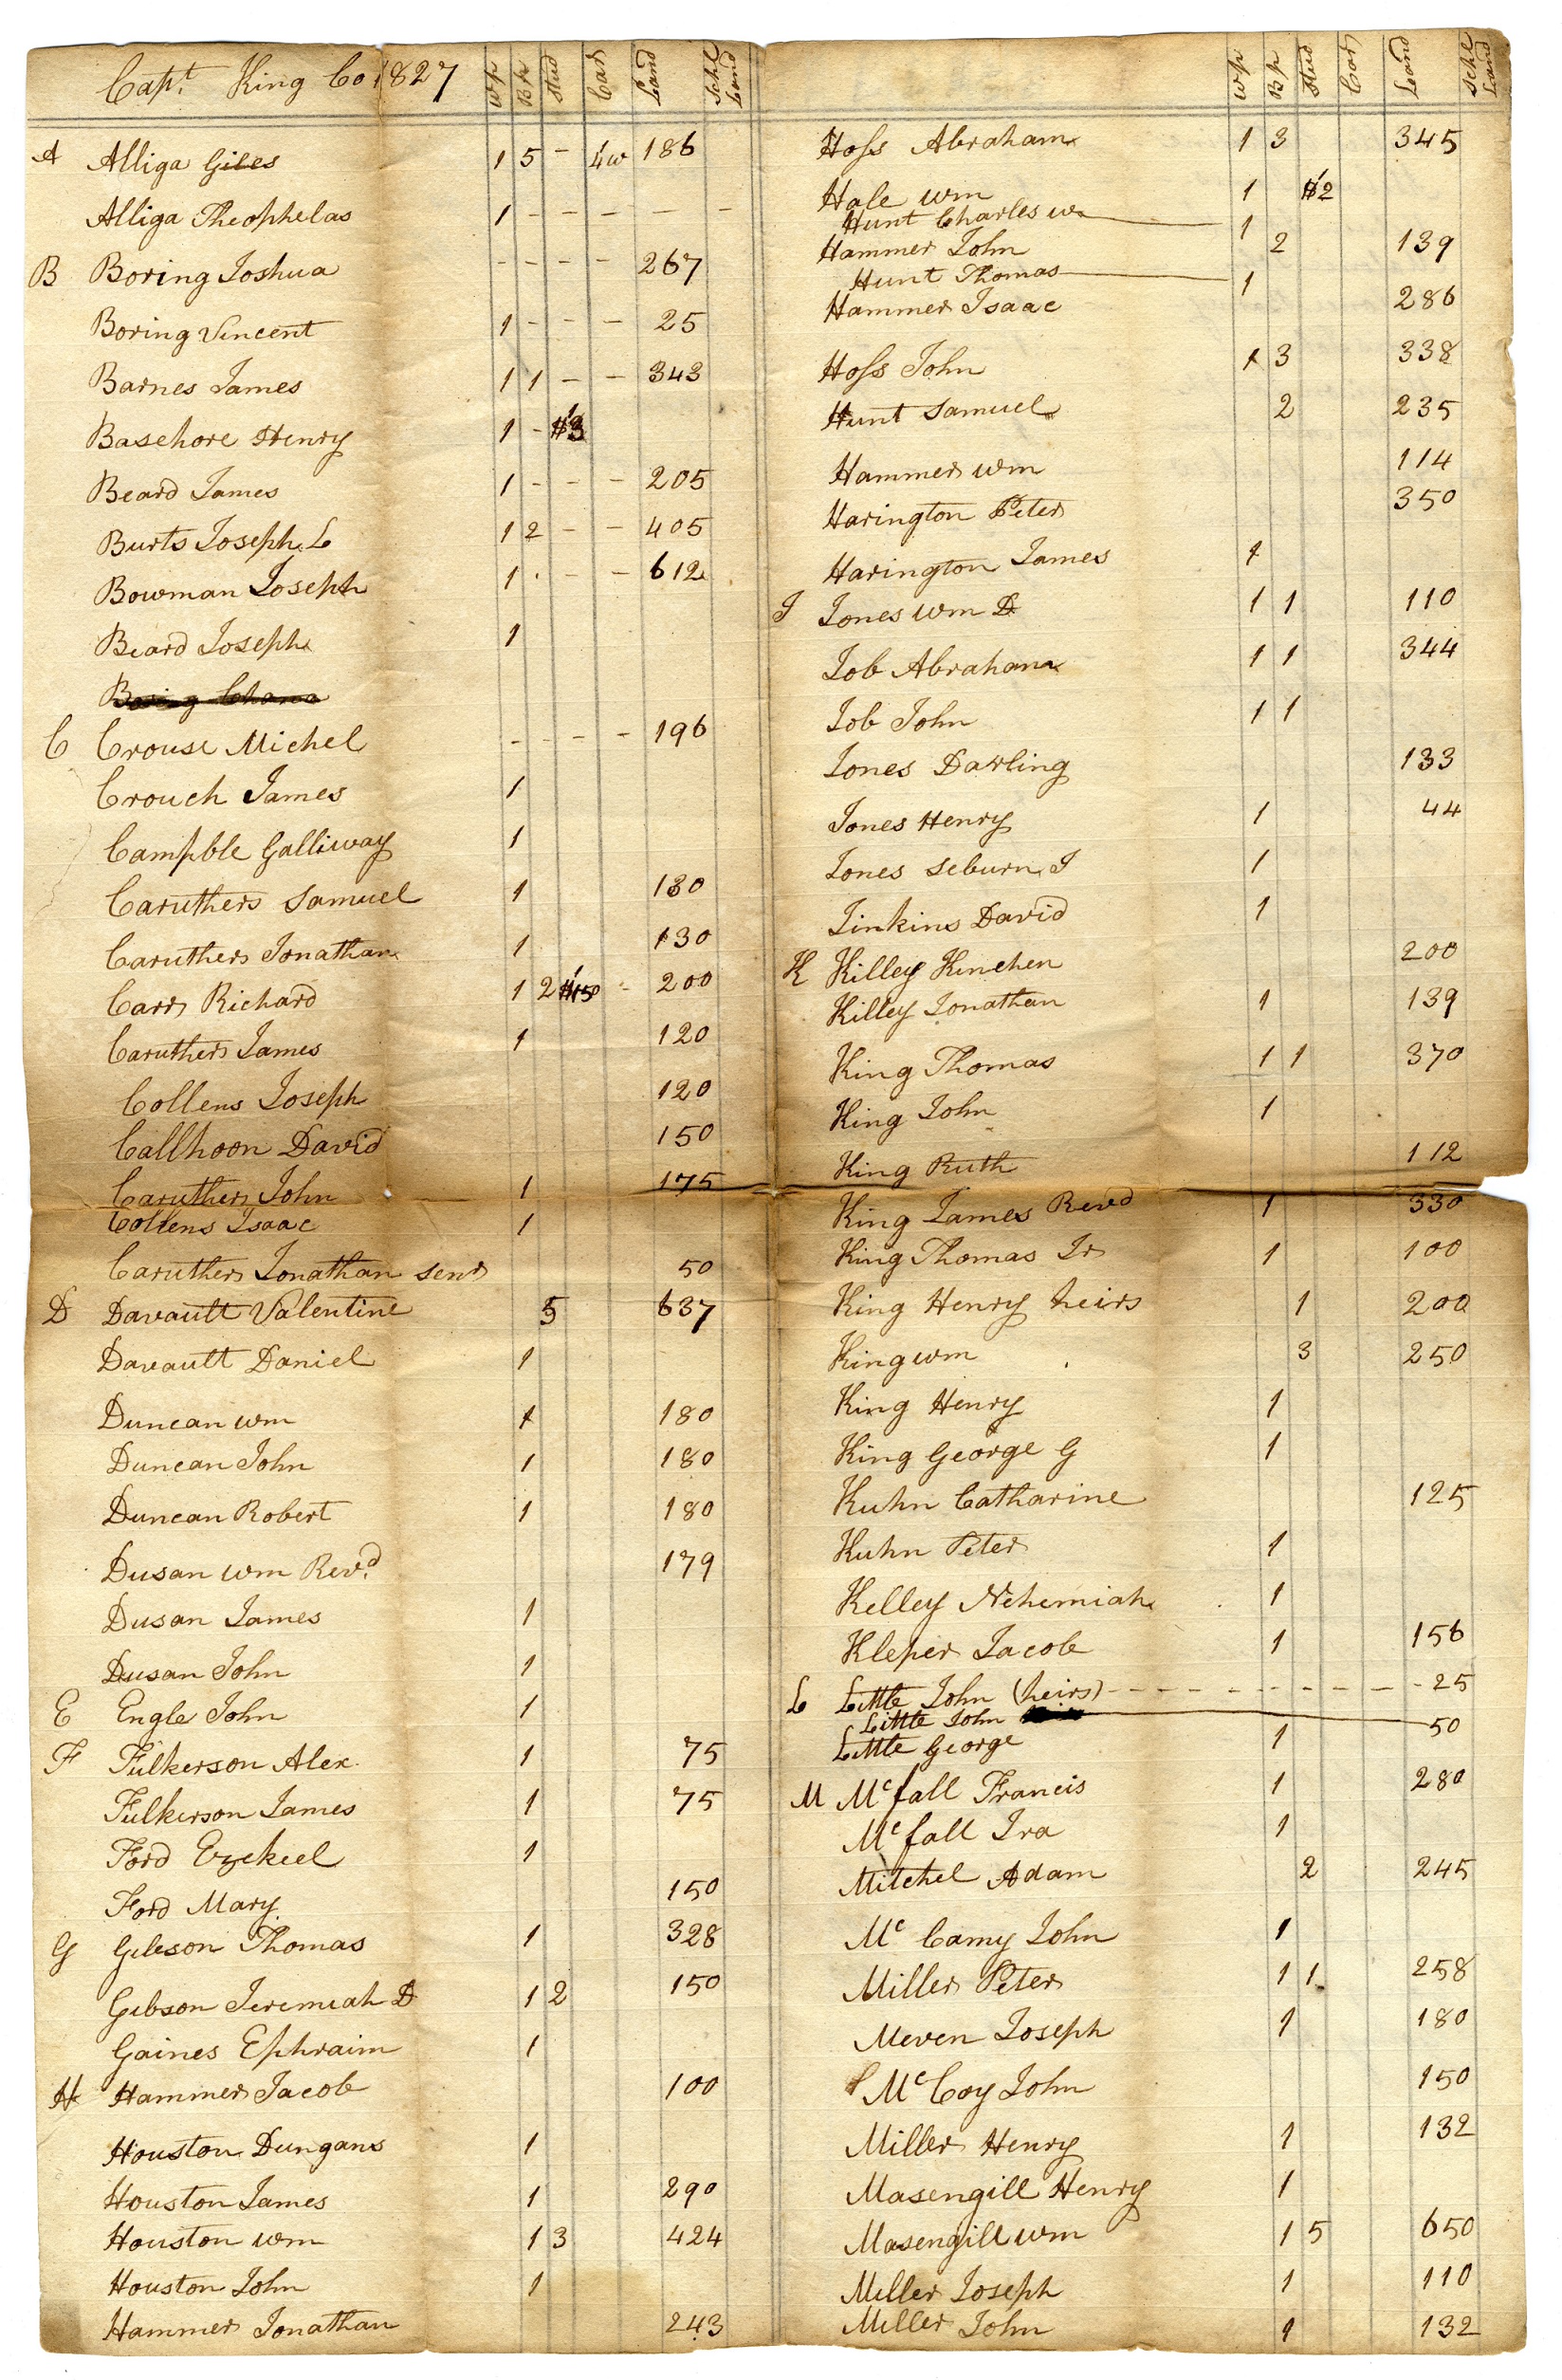 Capt. King Co 1827 wp Bp Stud Car Land Schl Land
A Alliga Giles 1 5 - 4w 186
Alliga Theophelas 1 - - - - -
B Boring Joshua - - - - 267
Boring Vincent 1 - - - 25
Barnes James 1 1 - - 343
Basehore Henry 1 - 1 $3
Beard James 1 - - - 205
Burts Joseph L 1 2 - - 405
Bowman Joseph 1 - - - 612
Beard Joseph 1
Boring
C Crouse Michel - - - - 196
Crouch James 1
Campble Galliway 1
Caruthers Samuel 1 130
Caruthers Jonathan 1 130
Carr Richard 1 2 - 200
Caruthers James 1 120
Collens Joseph 120
Callhoon David 150
Caruthers John 1 175
Collens Isaac 1
Caruthers Jonathan senr 50
D Davault Valentine 5 637
Davault Daniel 1
Duncan wm 1 180
Duncan John 1 180
Duncan Robert 1 180
Dusan wm Revd. 179
Dusan James 1
Dusan John 1
E Engle John 1
F Fulkerson Alex. 1 75
Fulkerson James 1 75
Ford Ezekiel 1
Ford Mary 150
G Gibson Thomas 1 328
Gibson Jeremiah D 1 2 150
Gaines Ephraim 1
H Hammer Jacob 100
Houston Dungans 1
Houston James 1 290
Houston wm 1 3 424
Houston John 1
Hammer Jonathan 243
wp Bp Stud Car Land Schl Land
Hoss Abraham 1 3 345
Hale wm 1 1 $2
Hunt Charles w 1
Hammer John 2 139
Hunt Thomas 1
Hammer Isaac 286
Hoss John 1 3 338
Hunt Samuel 2 235
Hammer wm 114
Harington Peter 350
Harington James 1
J Jones wm D 1 1 110
Job Abraham 1 1 344
Job John 1 1
Jones Darling 133
Jones Henry 1 44
Jones Seburn J 1
Jinkins David 1
K Killey Kinchen 200
Killey Jonathan 1 139
King Thomas 1 1 370
King John 1
King Ruth 112
King James Revd 1 330
King Thomas Jr 1 100
King Henry heirs 1 200
King wm 3 250
King Henry 1
King George G 1
Kuhn Catharine 125
Kuhn Peter 1
Kelley Nehemiah 1
Kleper Jacob 1 156
L Little John (heirs) - - - - - - - - - 25
Little John 50
Little George 1
M Mcfall Francis 1 280
Mcfall Ira 1
Mitchel Adam 2 245
Mc Camy John 1
Miller Peter 1 1 258
Meven Joseph 1 180
McCoy John 150
Miller Henry 1 132
Masengill Henry 1
Masengill wm 1 5 650
Miller Joseph 1 110
Miller John 1 132